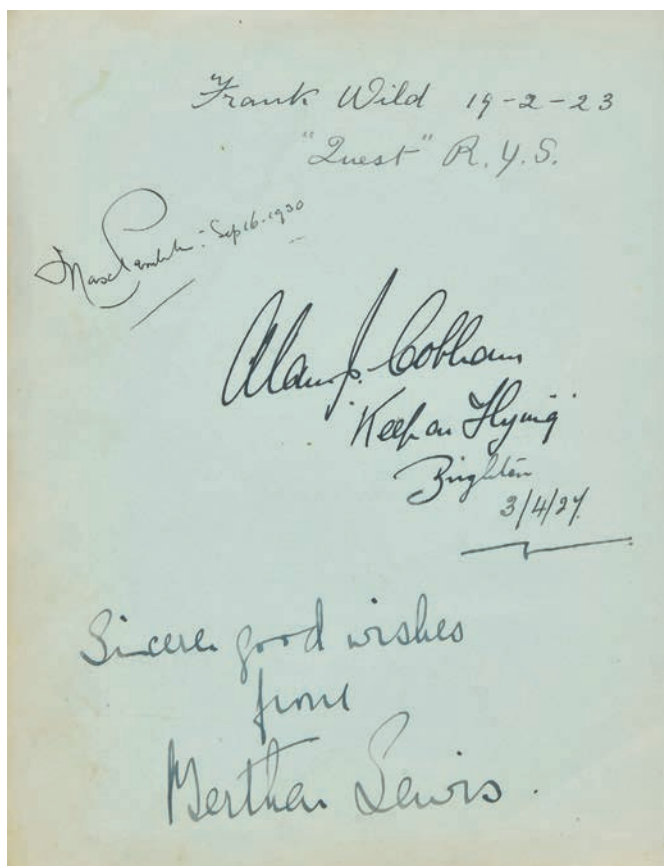 Frank Wild 19-2-23
"Quest" R.Y.S.
Sep 16. 1930
Alan J. Cobham
Keep on Flying
Brighton
3/4/27.
Sincere good wishes
from
Bertha Lewis.